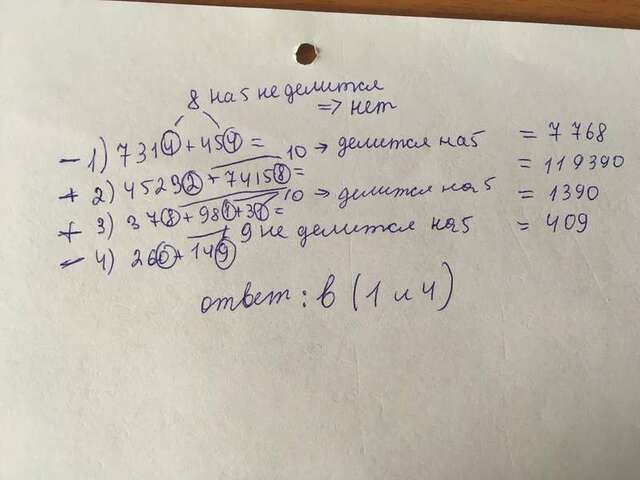 8 на 5 не делится
=> нет
- 1) 7314 + 454 = = 7768
+ 2) 45232 + 74158 = 10 → делится на 5 = 119390
+ 3) 378 + 981 + 31 = 10 → делится на 5 = 1390
- 4) 260 + 149 9 не делится на 5 = 409
ответ: в (1 и 4)